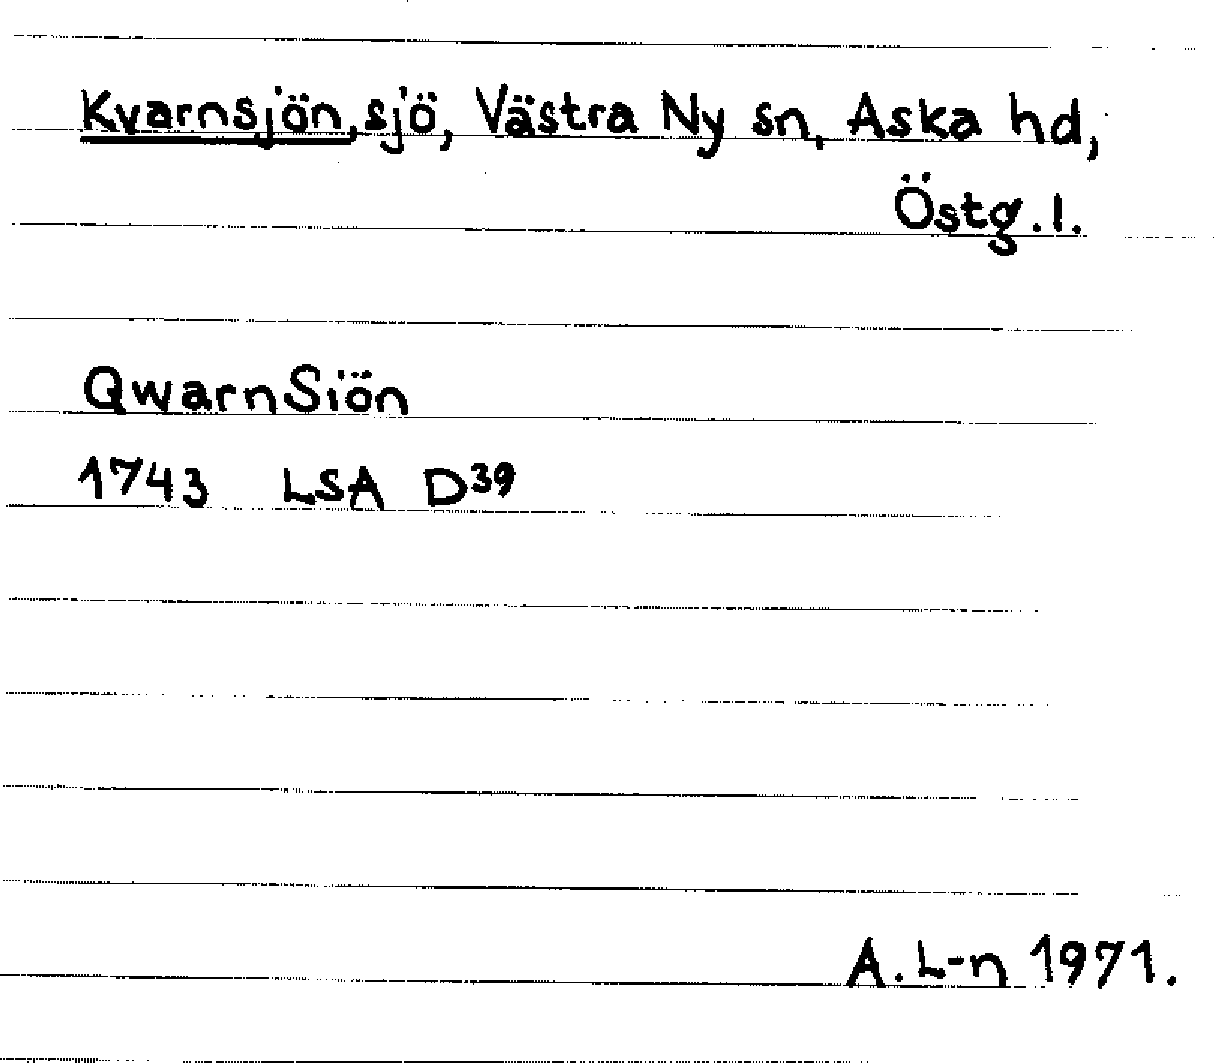 Kvarnsjön, sjö, Västra Ny sn, Aska hd,
Östg. l.
QwarnSiön
1743 LSA D39
A. L-n 1971.